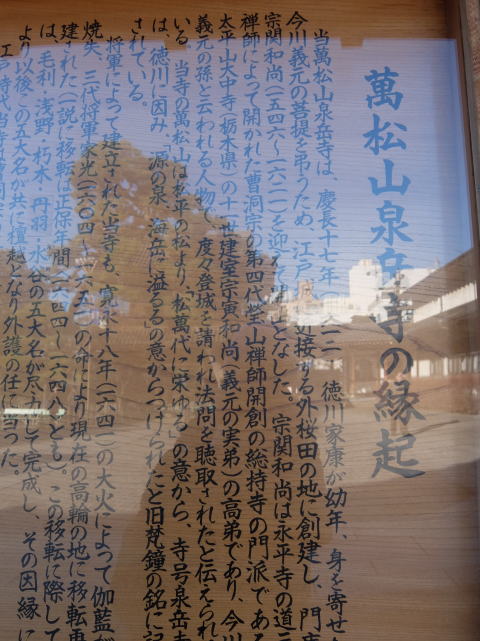 萬松山泉岳寺の縁起
当萬松山泉岳寺は、慶長十七年(一六一二)徳川家康が幼年、身を寄せ
今川義元の菩提を弔うため、江戸 近接する外桜田の地に創建し、門
宗関和尚(一五四六~一六二一)を迎えて となした。宗関和尚は永平寺の道元
禅師によって開かれた曹洞宗の第四代瑩山禅師開創の総持寺の門派である
太平山大中寺(栃木県)の十二世建室宗寅和尚(義元の実弟)の高弟であり、今川
義元の孫と云われる人物で、度々登城を請われ法問を聴取されたと伝えられ
いる。当寺の萬松山は松平の松より、「松萬代に栄ゆる」の意から、寺号泉岳寺
は、徳川に因み、「源の泉、海岳に溢るる」の意からつけられたと旧梵鐘の銘に記
されている。
将軍によって建立された当寺も、寛永十八年(一六四一)の大火によって伽藍が
焼失、三代将軍家光(一六〇四~一六五一)の命により現在の高輪の地に移転再
建された(一説に移転は正保年間(一六四四~一六四八)とも)。この移転に際して
は、毛利・浅野・朽木・丹羽・水谷の五大名が尽力して完成し、その因縁に
より以後この五大名が共に檀越となり外護の任に当った。